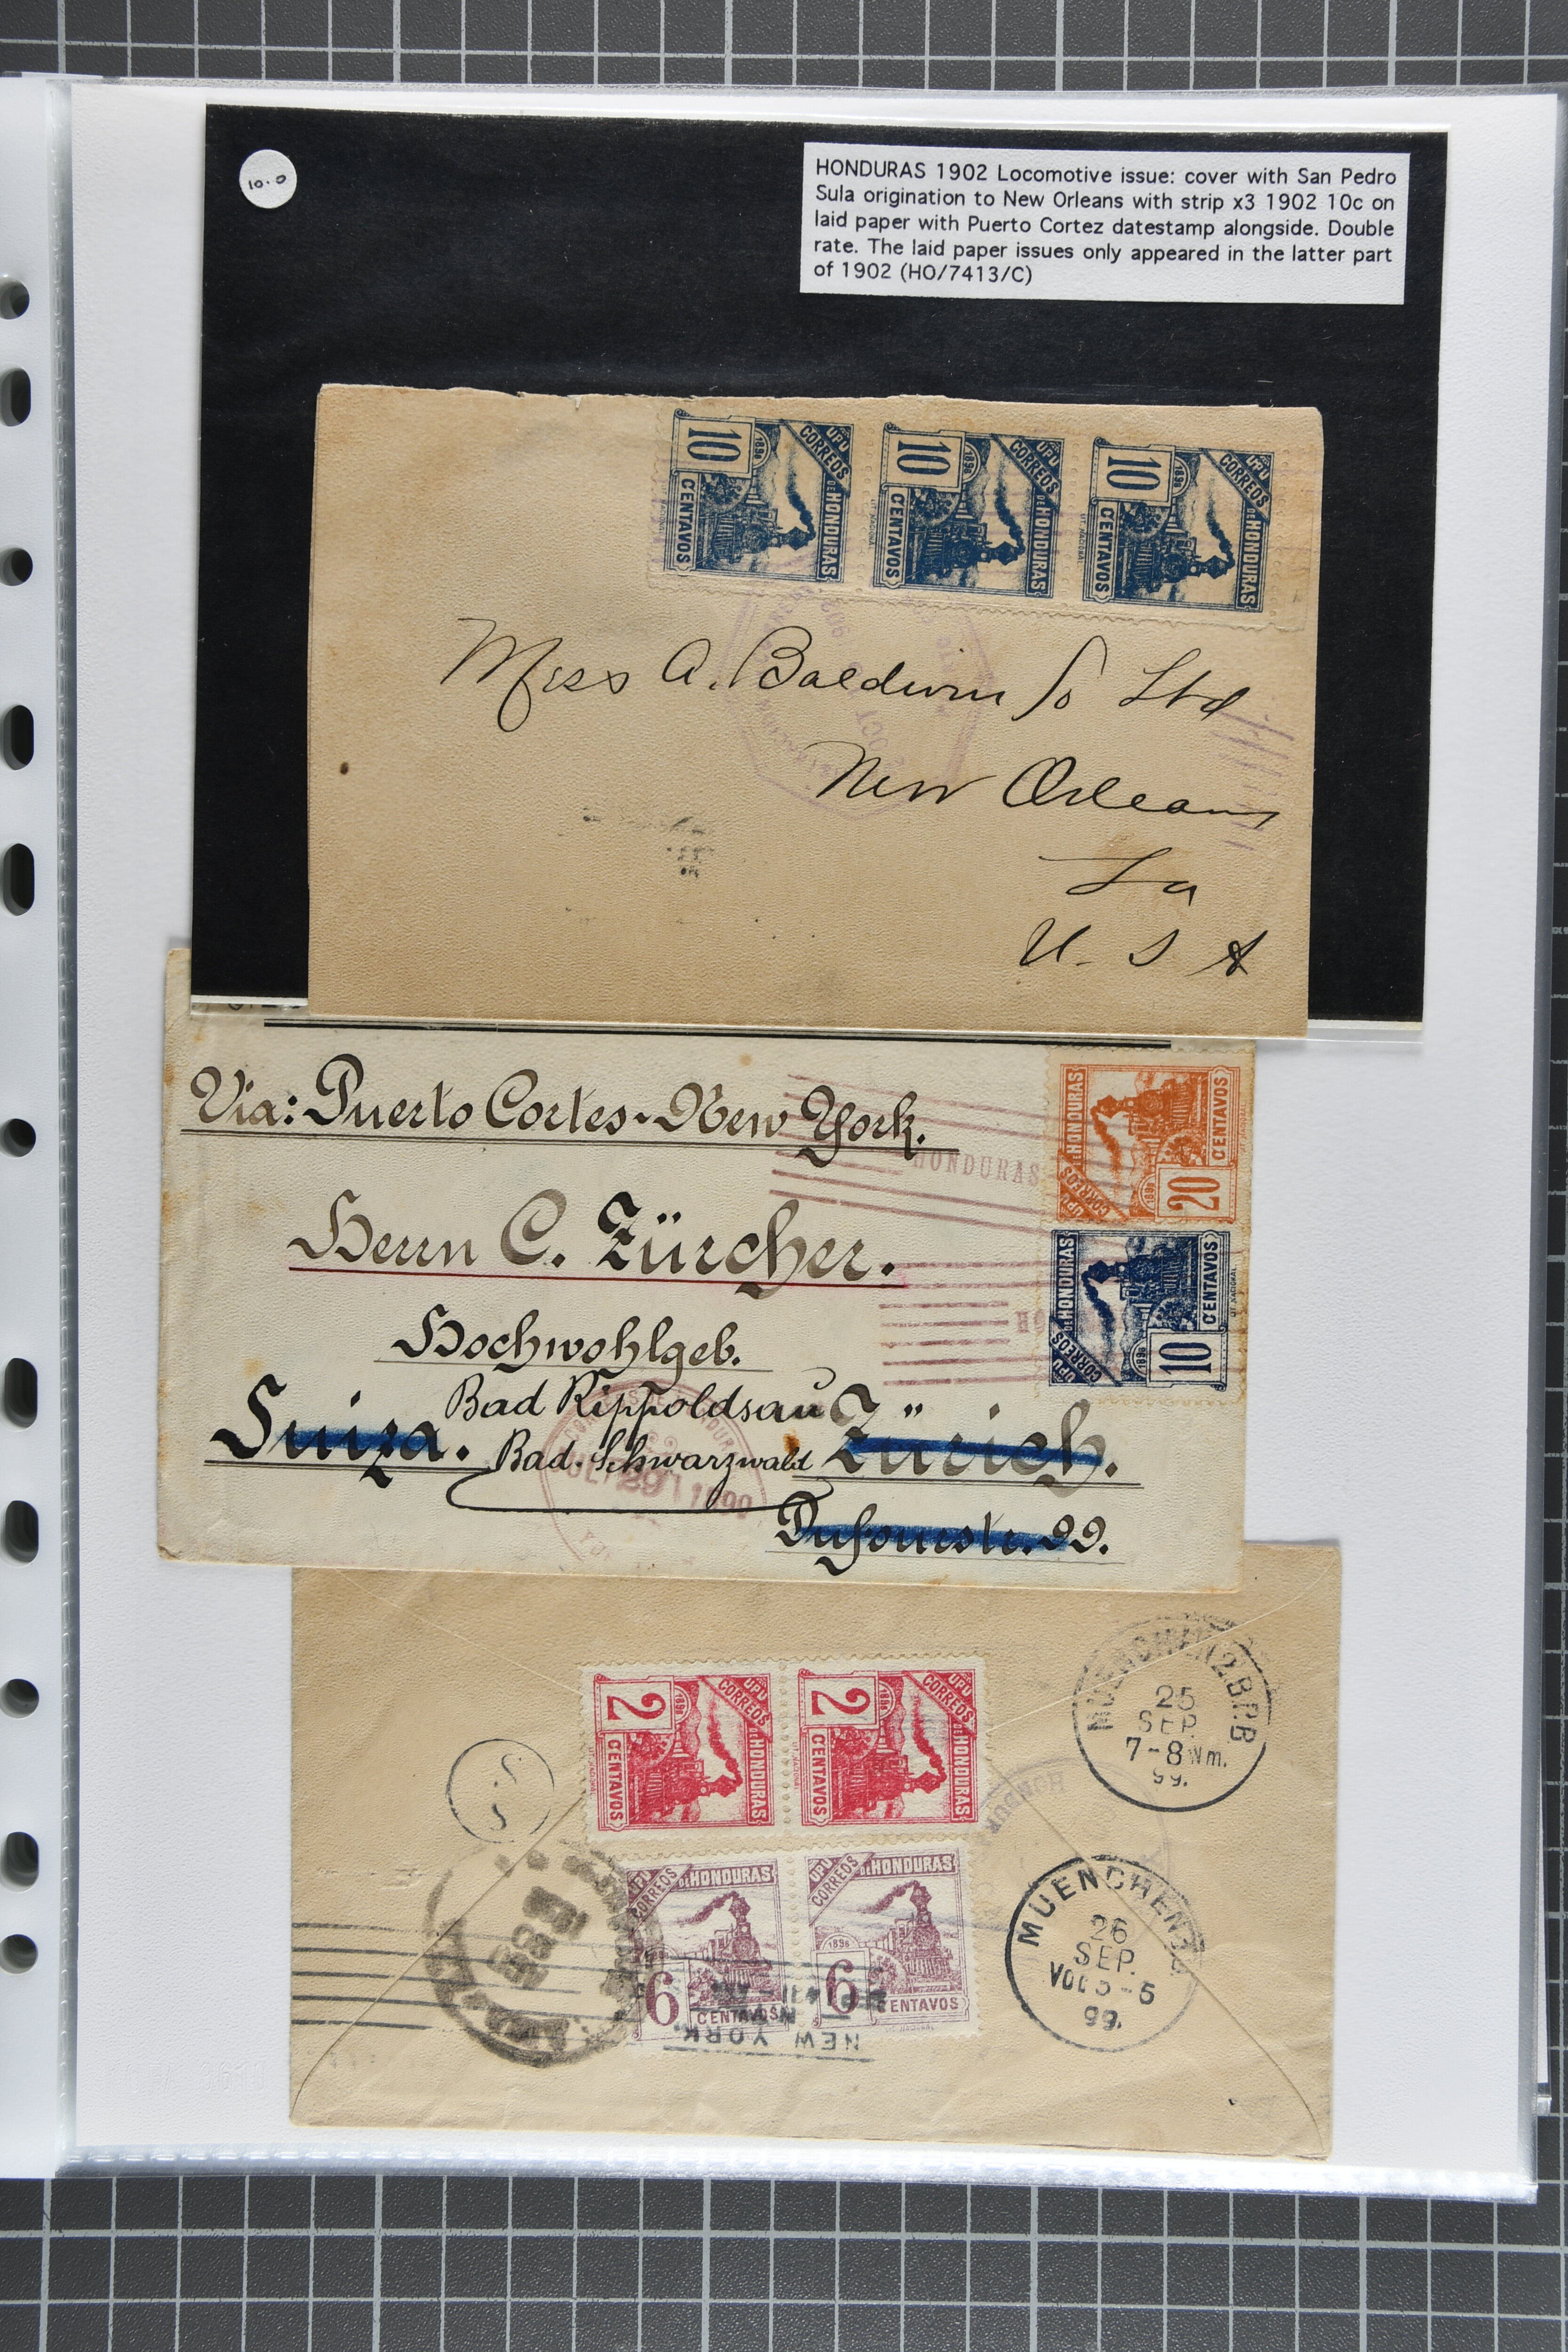 10.0
HONDURAS 1902 Locomotive issue: cover with San Pedro
Sula origination to New Orleans with strip x3 1902 10c on
laid paper with Puerto Cortez datestamp alongside. Double
rate. The laid paper issues only appeared in the latter part
of 1902 (HO/7413/C)
UPU CORREOS DE HONDURAS 1898 10 CENTAVOS
UPU CORREOS DE HONDURAS 1898 10 CENTAVOS
UPU CORREOS DE HONDURAS 1898 10 CENTAVOS
OCT
Miss A. Baldwin
New Orleans
La
U. S A
Via: Puerto Cortes-New York.
HONDURAS
UPU CORREOS DE HONDURAS 1898 20 CENTAVOS
Herrn C. Zürcher.
UPU CORREOS DE HONDURAS 1898 10 CENTAVOS
Hochwohlgeb.
Bad Rippoldsau
Suiza. Bad. Schwarzwald Zürich.
29
UPU CORREOS DE HONDURAS 1898 2 CENTAVOS
UPU CORREOS DE HONDURAS 1898 2 CENTAVOS
MUENCHEN 2.B.P.B
25
SEP.
7-8 Nm.
99.
HONDUR
UPU CORREOS DE HONDURAS 6 CENTAVOS
UPU CORREOS DE HONDURAS 1898 6 CENTAVOS
NEW YORK.
MUENCHEN
26
SEP.
VOL 5-6
99.